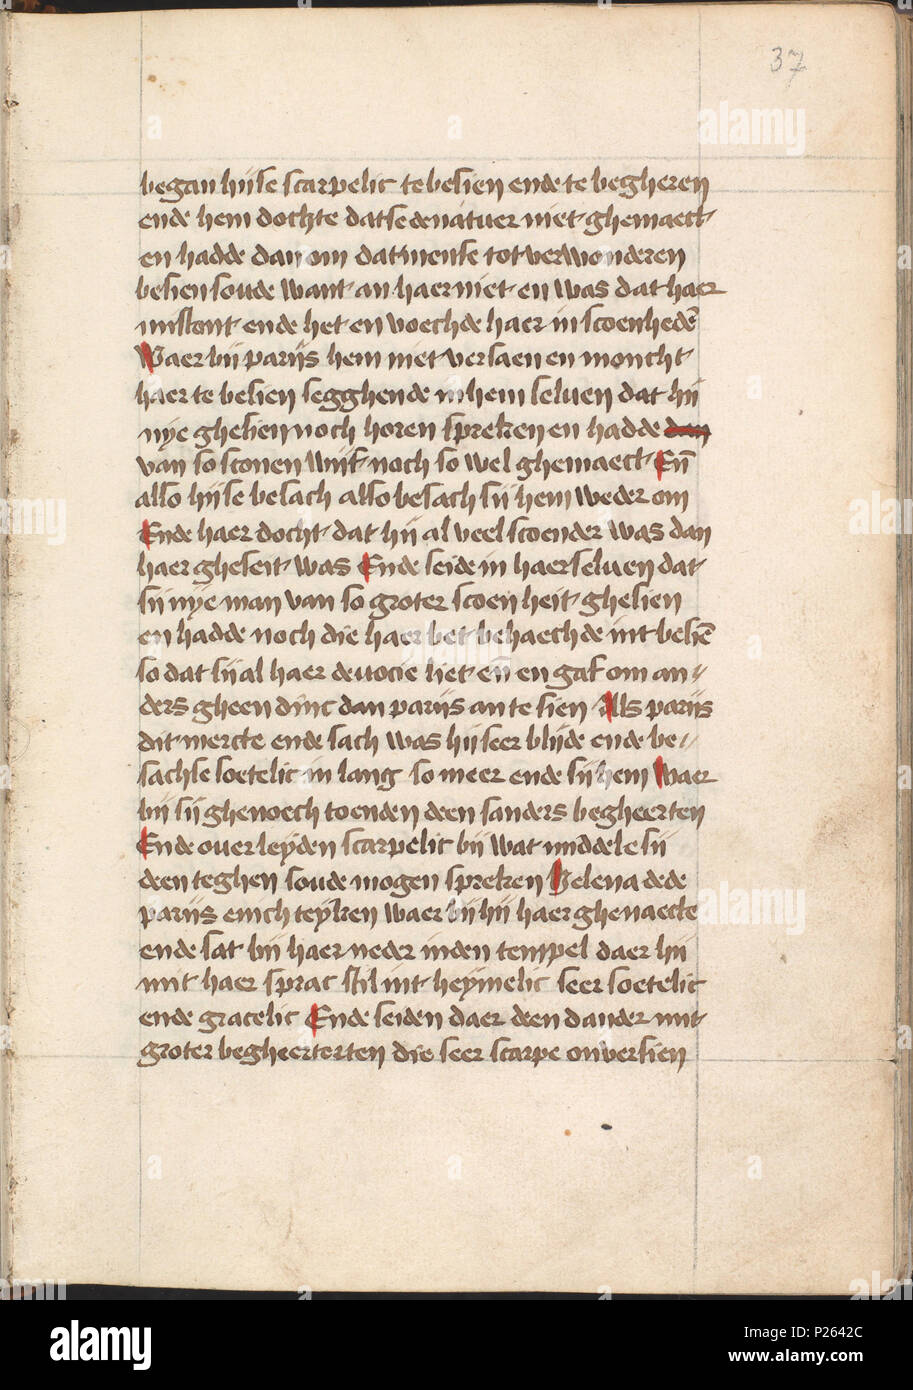 37
began hijse scarpelic te besien ende te begheren
ende hem dochte datse de natuer niet ghemaect
en hadde dan om datmense tot verwonderen
besien soude want an haer niet en was dat haer
misstont ende het en voechde haer in scoenhedē
Waer bij parijs hem niet versaen en moncht
haer te besien segghende in hem seluen dat hij
nye ghesien noch horen spreken en hadde dan
van so sconen wijf noch so wel ghemaect Eñ
also hijse besach also besach sij hem weder om
Ende haer docht dat hij al veel scoender was dan
haer gheseit was Ende seide in haer seluen dat
sij nye man van so groter scoenheit ghesien
en hadde noch die haer bet behaechde int besiē
so dat sij al haer deuocie liet eñ en gaf om an//
ders gheen dinc dan parijs an te sien Als parijs
dit mercte ende sach was hij seer blijde ende be//
sachse soetelic in lang so meer ende sij hem Waer
bij sij ghenoech toenden deen sanders begheerten
Ende ouerleyden scarpelic bij wat middele sij
deen teghen soude mogen spreken Helena dede
parijs enich teyken waer bij hij haer ghenaecte
ende sat bij haer neder inden tempel daer hij
mit haer sprac stil int heymelic seer soetelic
ende gracelic Ende seiden daer deen dander mit
groter begheerterten die seer scarpe onversien
alamy
Image ID: P2642C
www.alamy.com